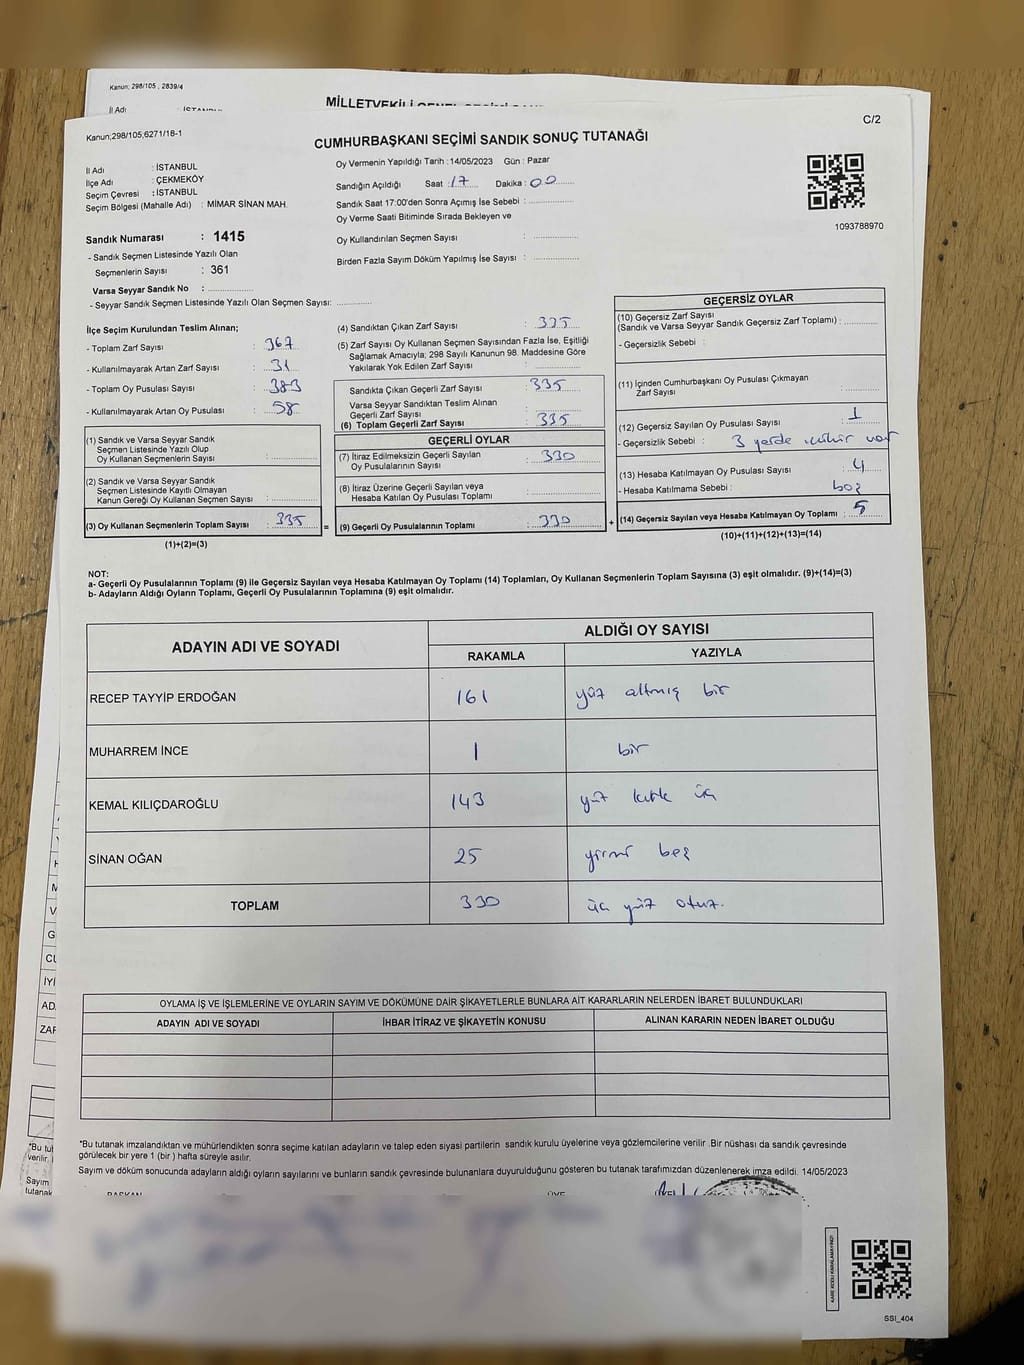 Kanun; 298/105 , 2839/4
İl Adı : İSTANBUL
C/2
Kanun;298/105;6271/18-1
CUMHURBAŞKANI SEÇİMİ SANDIK SONUÇ TUTANAĞI
İl Adı : İSTANBUL
İlçe Adı : ÇEKMEKÖY
Seçim Çevresi : İSTANBUL
Seçim Bölgesi (Mahalle Adı) : MİMAR SİNAN MAH.
Sandık Numarası : 1415
- Sandık Seçmen Listesinde Yazılı Olan
Seçmenlerin Sayısı : 361
Varsa Seyyar Sandık No :
- Seyyar Sandık Seçmen Listesinde Yazılı Olan Seçmen Sayısı:
Oy Vermenin Yapıldığı Tarih :14/05/2023 Gün : Pazar
Sandığın Açıldığı Saat : 17 Dakika : 00
Sandık Saat 17:00'den Sonra Açımış İse Sebebi :
Oy Verme Saati Bitiminde Sırada Bekleyen ve
Oy Kullandırılan Seçmen Sayısı :
Birden Fazla Sayım Döküm Yapılmış İse Sayısı :
1093788970
İlçe Seçim Kurulundan Teslim Alınan;
- Toplam Zarf Sayısı : 367
- Kullanılmayarak Artan Zarf Sayısı : 31
- Toplam Oy Pusulası Sayısı : 383
- Kullanılmayarak Artan Oy Pusulası : 58
(1) Sandık ve Varsa Seyyar Sandık
Seçmen Listesinde Yazılı Olup
Oy Kullanan Seçmenlerin Sayısı :
(2) Sandık ve Varsa Seyyar Sandık
Seçmen Listesinde Kayıtlı Olmayan
Kanun Gereği Oy Kullanan Seçmen Sayısı :
(3) Oy Kullanan Seçmenlerin Toplam Sayısı : 335
(1)+(2)=(3)
=
(4) Sandıktan Çıkan Zarf Sayısı : 335
(5) Zarf Sayısı Oy Kullanan Seçmen Sayısından Fazla İse, Eşitliği
Sağlamak Amacıyla; 298 Sayılı Kanunun 98. Maddesine Göre
Yakılarak Yok Edilen Zarf Sayısı :
Sandıkta Çıkan Geçerli Zarf Sayısı : 335
Varsa Seyyar Sandıktan Teslim Alınan
Geçerli Zarf Sayısı :
(6) Toplam Geçerli Zarf Sayısı : 335
GEÇERLİ OYLAR
(7) İtiraz Edilmeksizin Geçerli Sayılan
Oy Pusulalarının Sayısı : 330
(8) İtiraz Üzerine Geçerli Sayılan veya
Hesaba Katılan Oy Pusulası Toplamı :
(9) Geçerli Oy Pusulalarının Toplamı : 330
+
GEÇERSİZ OYLAR
(10) Geçersiz Zarf Sayısı
(Sandık ve Varsa Seyyar Sandık Geçersiz Zarf Toplamı) :
- Geçersizlik Sebebi :
(11) İçinden Cumhurbaşkanı Oy Pusulası Çıkmayan
Zarf Sayısı :
(12) Geçersiz Sayılan Oy Pusulası Sayısı : 1
- Geçersizlik Sebebi : 3 yerde mühür var
(13) Hesaba Katılmayan Oy Pusulası Sayısı : 4
- Hesaba Katılmama Sebebi : boş
(14) Geçersiz Sayılan veya Hesaba Katılmayan Oy Toplamı : 5
(10)+(11)+(12)+(13)=(14)
NOT:
a- Geçerli Oy Pusulalarının Toplamı (9) ile Geçersiz Sayılan veya Hesaba Katılmayan Oy Toplamı (14) Toplamları, Oy Kullanan Seçmenlerin Toplam Sayısına (3) eşit olmalıdır. (9)+(14)=(3)
b- Adayların Aldığı Oyların Toplamı, Geçerli Oy Pusulalarının Toplamına (9) eşit olmalıdır.
ADAYIN ADI VE SOYADI ALDIĞI OY SAYISI
RAKAMLA YAZIYLA
RECEP TAYYİP ERDOĞAN 161 yüz altmış bir
MUHARREM İNCE 1 bir
KEMAL KILIÇDAROĞLU 143 yüz kırk üç
SİNAN OĞAN 25 yirmi beş
TOPLAM 330 üç yüz otuz.
OYLAMA İŞ VE İŞLEMLERİNE VE OYLARIN SAYIM VE DÖKÜMÜNE DAİR ŞİKAYETLERLE BUNLARA AİT KARARLARIN NELERDEN İBARET BULUNDUKLARI
ADAYIN ADI VE SOYADI İHBAR İTİRAZ VE ŞİKAYETİN KONUSU ALINAN KARARIN NEDEN İBARET OLDUĞU
*Bu tutanak imzalandıktan ve mühürlendikten sonra seçime katılan adayların ve talep eden siyasi partilerin sandık kurulu üyelerine veya gözlemcilerine verilir .Bir nüshası da sandık çevresinde
görülecek bir yere 1 (bir ) hafta süreyle asılır.
Sayım ve döküm sonucunda adayların aldığı oyların sayılarını ve bunların sandık çevresinde bulunanlara duyurulduğunu gösteren bu tutanak tarafımızdan düzenlenerek imza edildi. 14/05/2023
BAŞKAN ÜYE
SSI_404